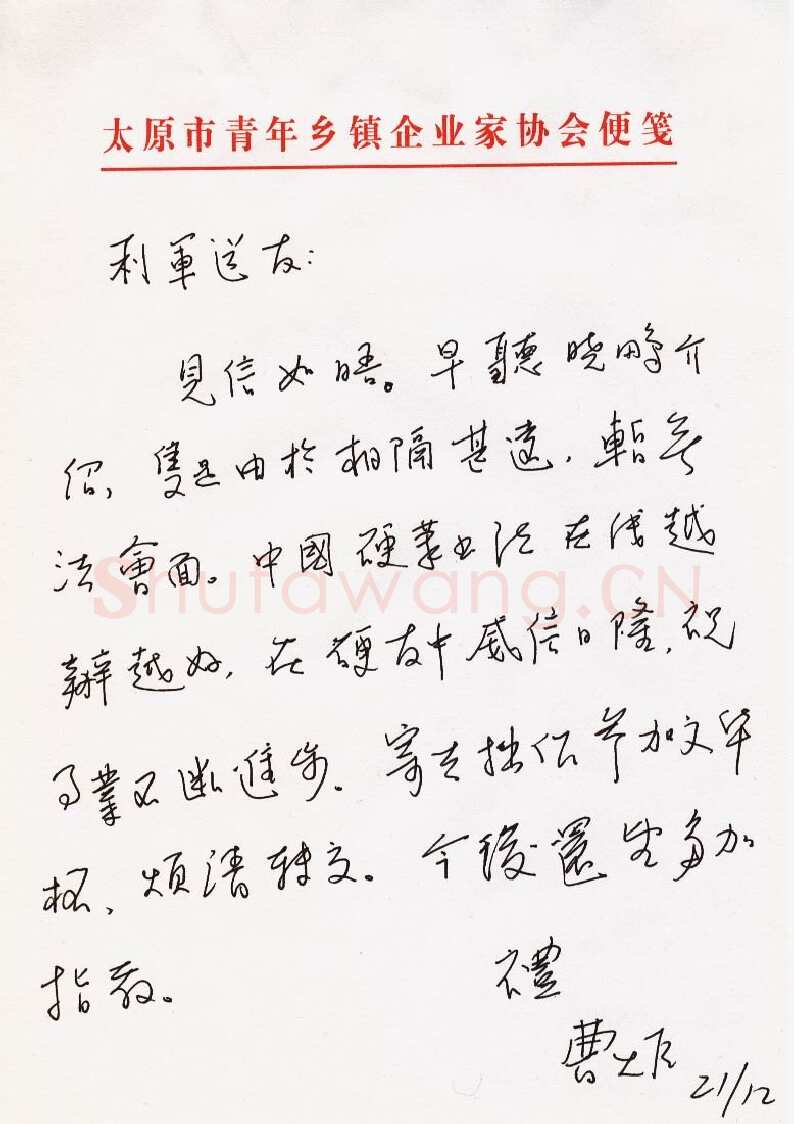 太原市青年乡镇企业家协会便笺
利軍道友：
見信如晤。早聽晓鹏介
绍，隻是由於相隔甚遠，暫无
法會面。中國硬筆书法在线越
辦越好，在硬友中威信日隆，祝
事業不断進步。寄去拙作参加文华
杯，烦请转交。今後還望多加
指教。
禮
曹
21/12
ShufaWang.CN